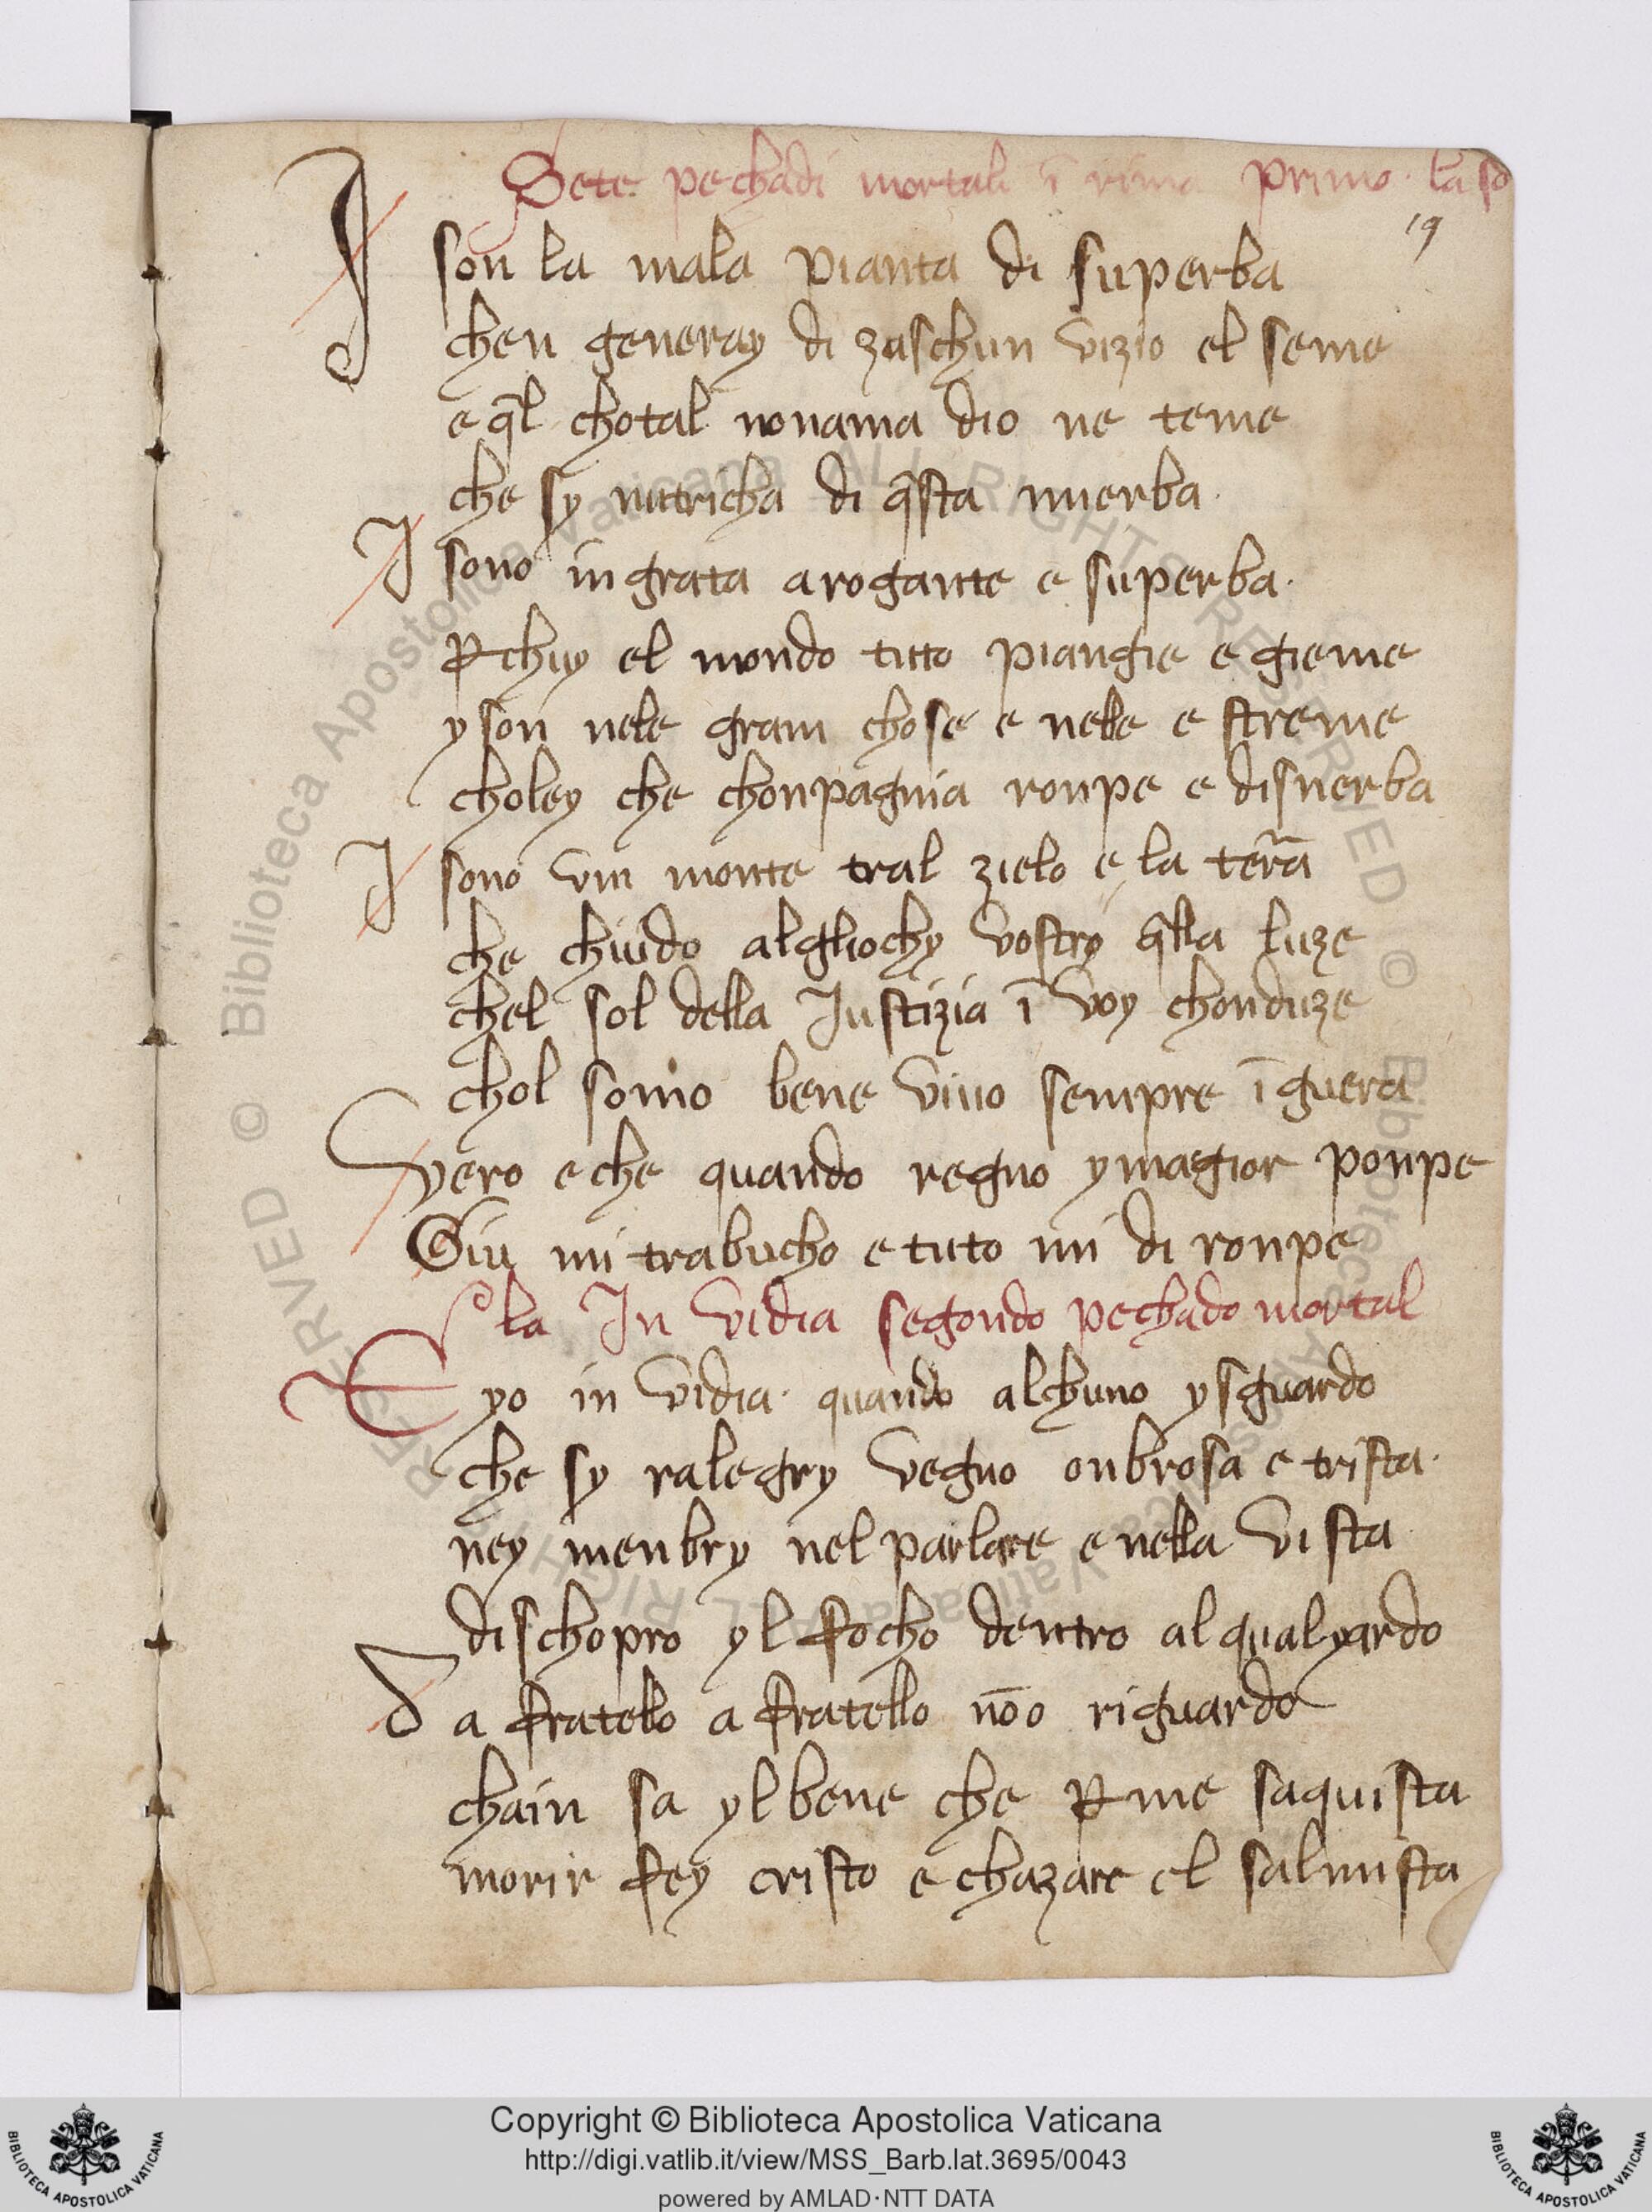 Sete pechadi mortali ī rima primo la so
19
I son la mala pianta di superba
chen generay di zaschun vizio el seme
e q̄l chotal nonama dio ne teme
che sy nutricha di q̄sta mierba
I sono in grata arogante e superba
ꝑchuy el mondo tuto piangie e gieme
y son nele gram chose e nelle e streme
choley che chonpagnia ronpe e disnerba
I sono vin monte tral zielo e la terā
che chiudo algliochy vostry q̄lla luze
chel sol della Justizia ī voy chonduze
chol somo bene vivo sempre ī guera
Vero e che quando regno y magior ponpe
Giu mi trabucho e tuto mi di ronpe
la In vidia segondo pechado mortal
E yo in vidia quando alchuno y sguardo
che sy ralegry vegno onbrosa e trista
ney menbry nel parlare e nella vista
dischopro yl focho dentro al qual yardo
Da fratello a fratello nōo riguardo
chain sa yl bene che ꝑ me saquista
morir fey cristo e chazare el salmista
Copyright © Biblioteca Apostolica Vaticana
http://digi.vatlib.it/view/MSS_Barb.lat.3695/0043
powered by AMLAD·NTT DATA
BIBLIOTECA APOSTOLICA VATICANA
BIBLIOTECA APOSTOLICA VATICANA
© Biblioteca Apostolica Vaticana ALL RIGHTS RESERVED © Biblioteca Apostolica Vaticana ALL RIGHTS RESERVED